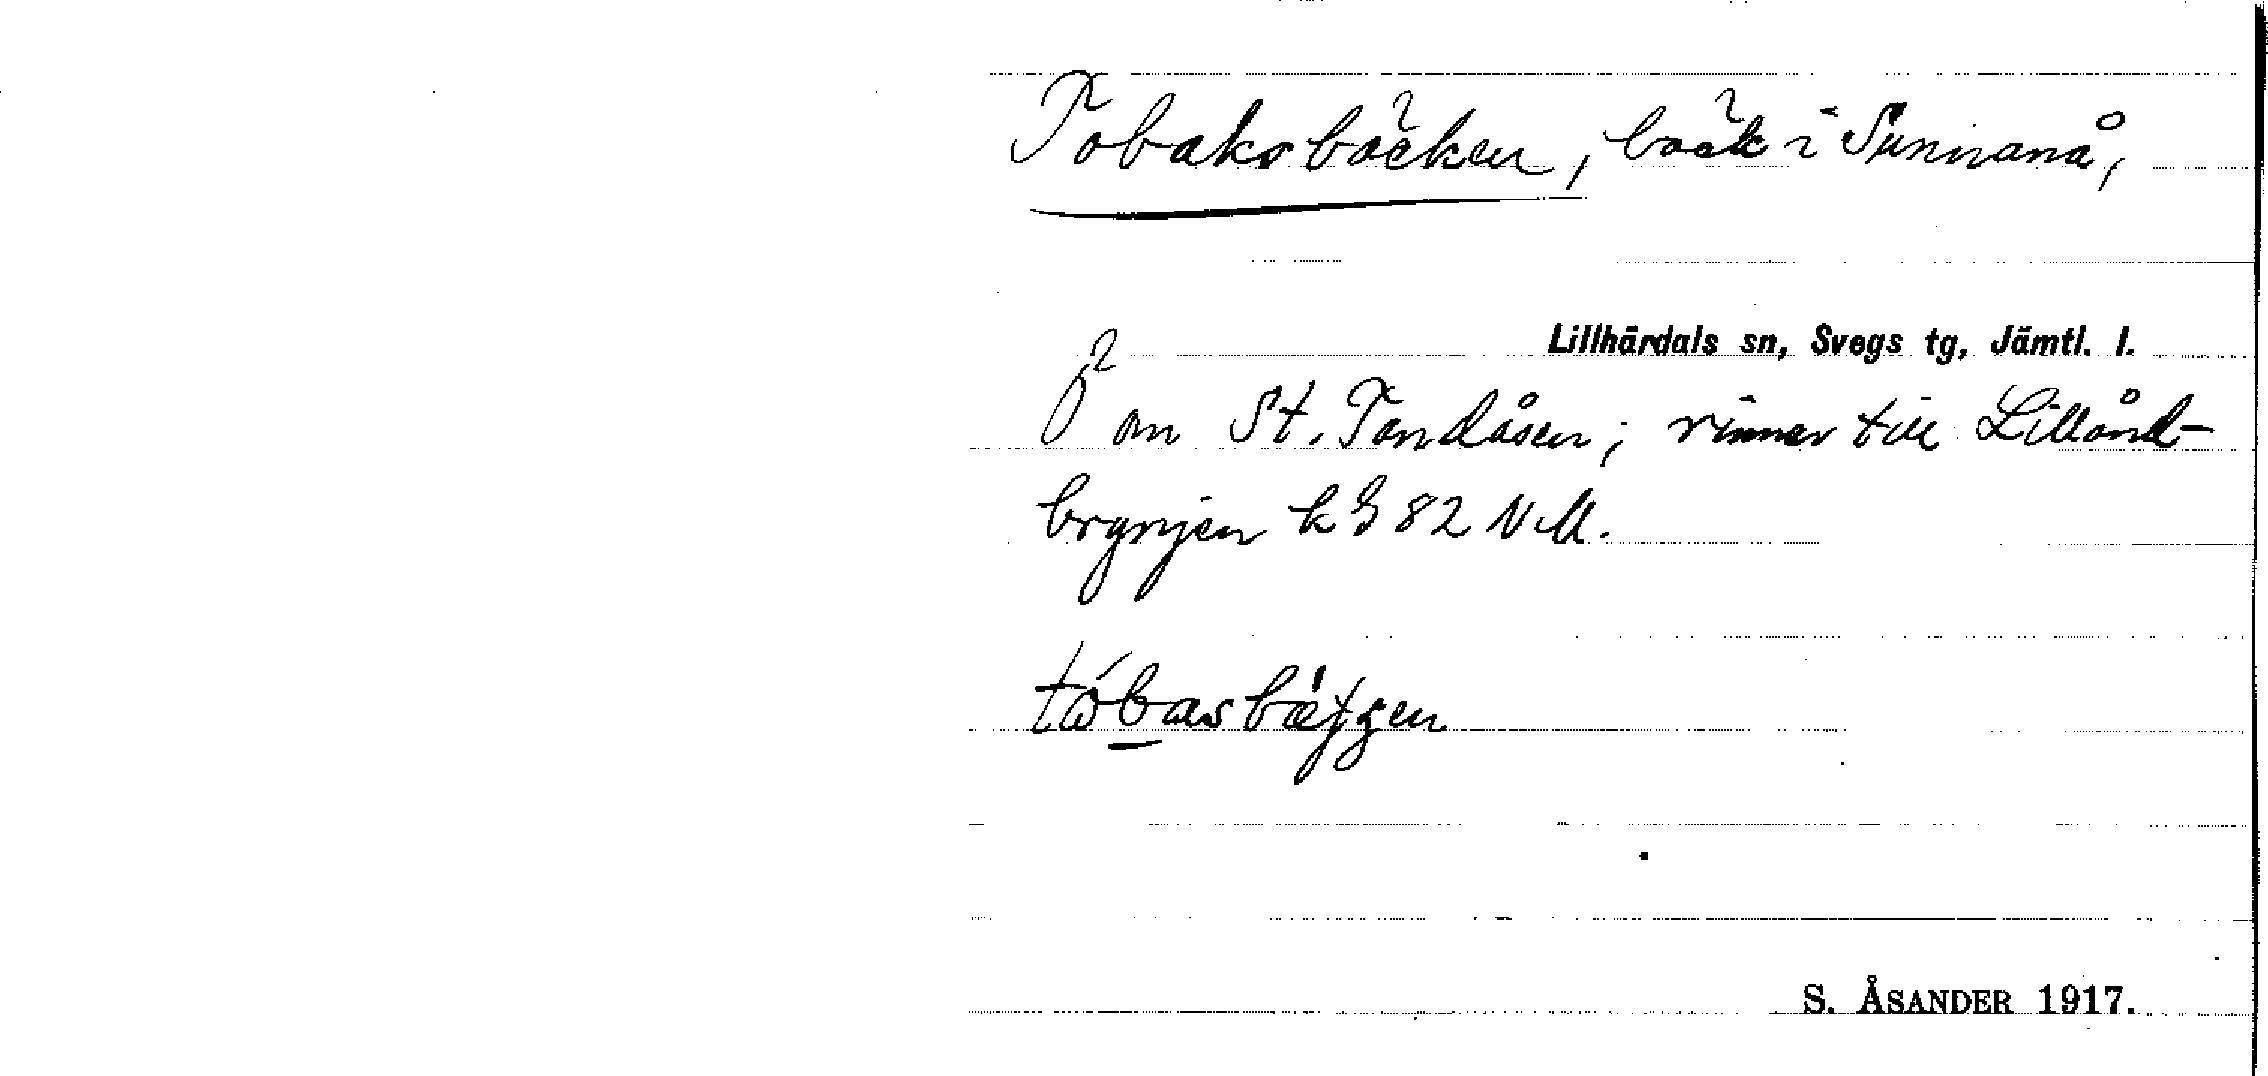 Tobaksbäcken, bäck i Sunnanå,
Lillhärdals sn, Svegs tg, Jämtl. l.
Ö om St. Tandåsen; rinner till Lillånd-
brynjen k G 82 NM.
tóbasbätjen
S. ÅSANDER 1917.